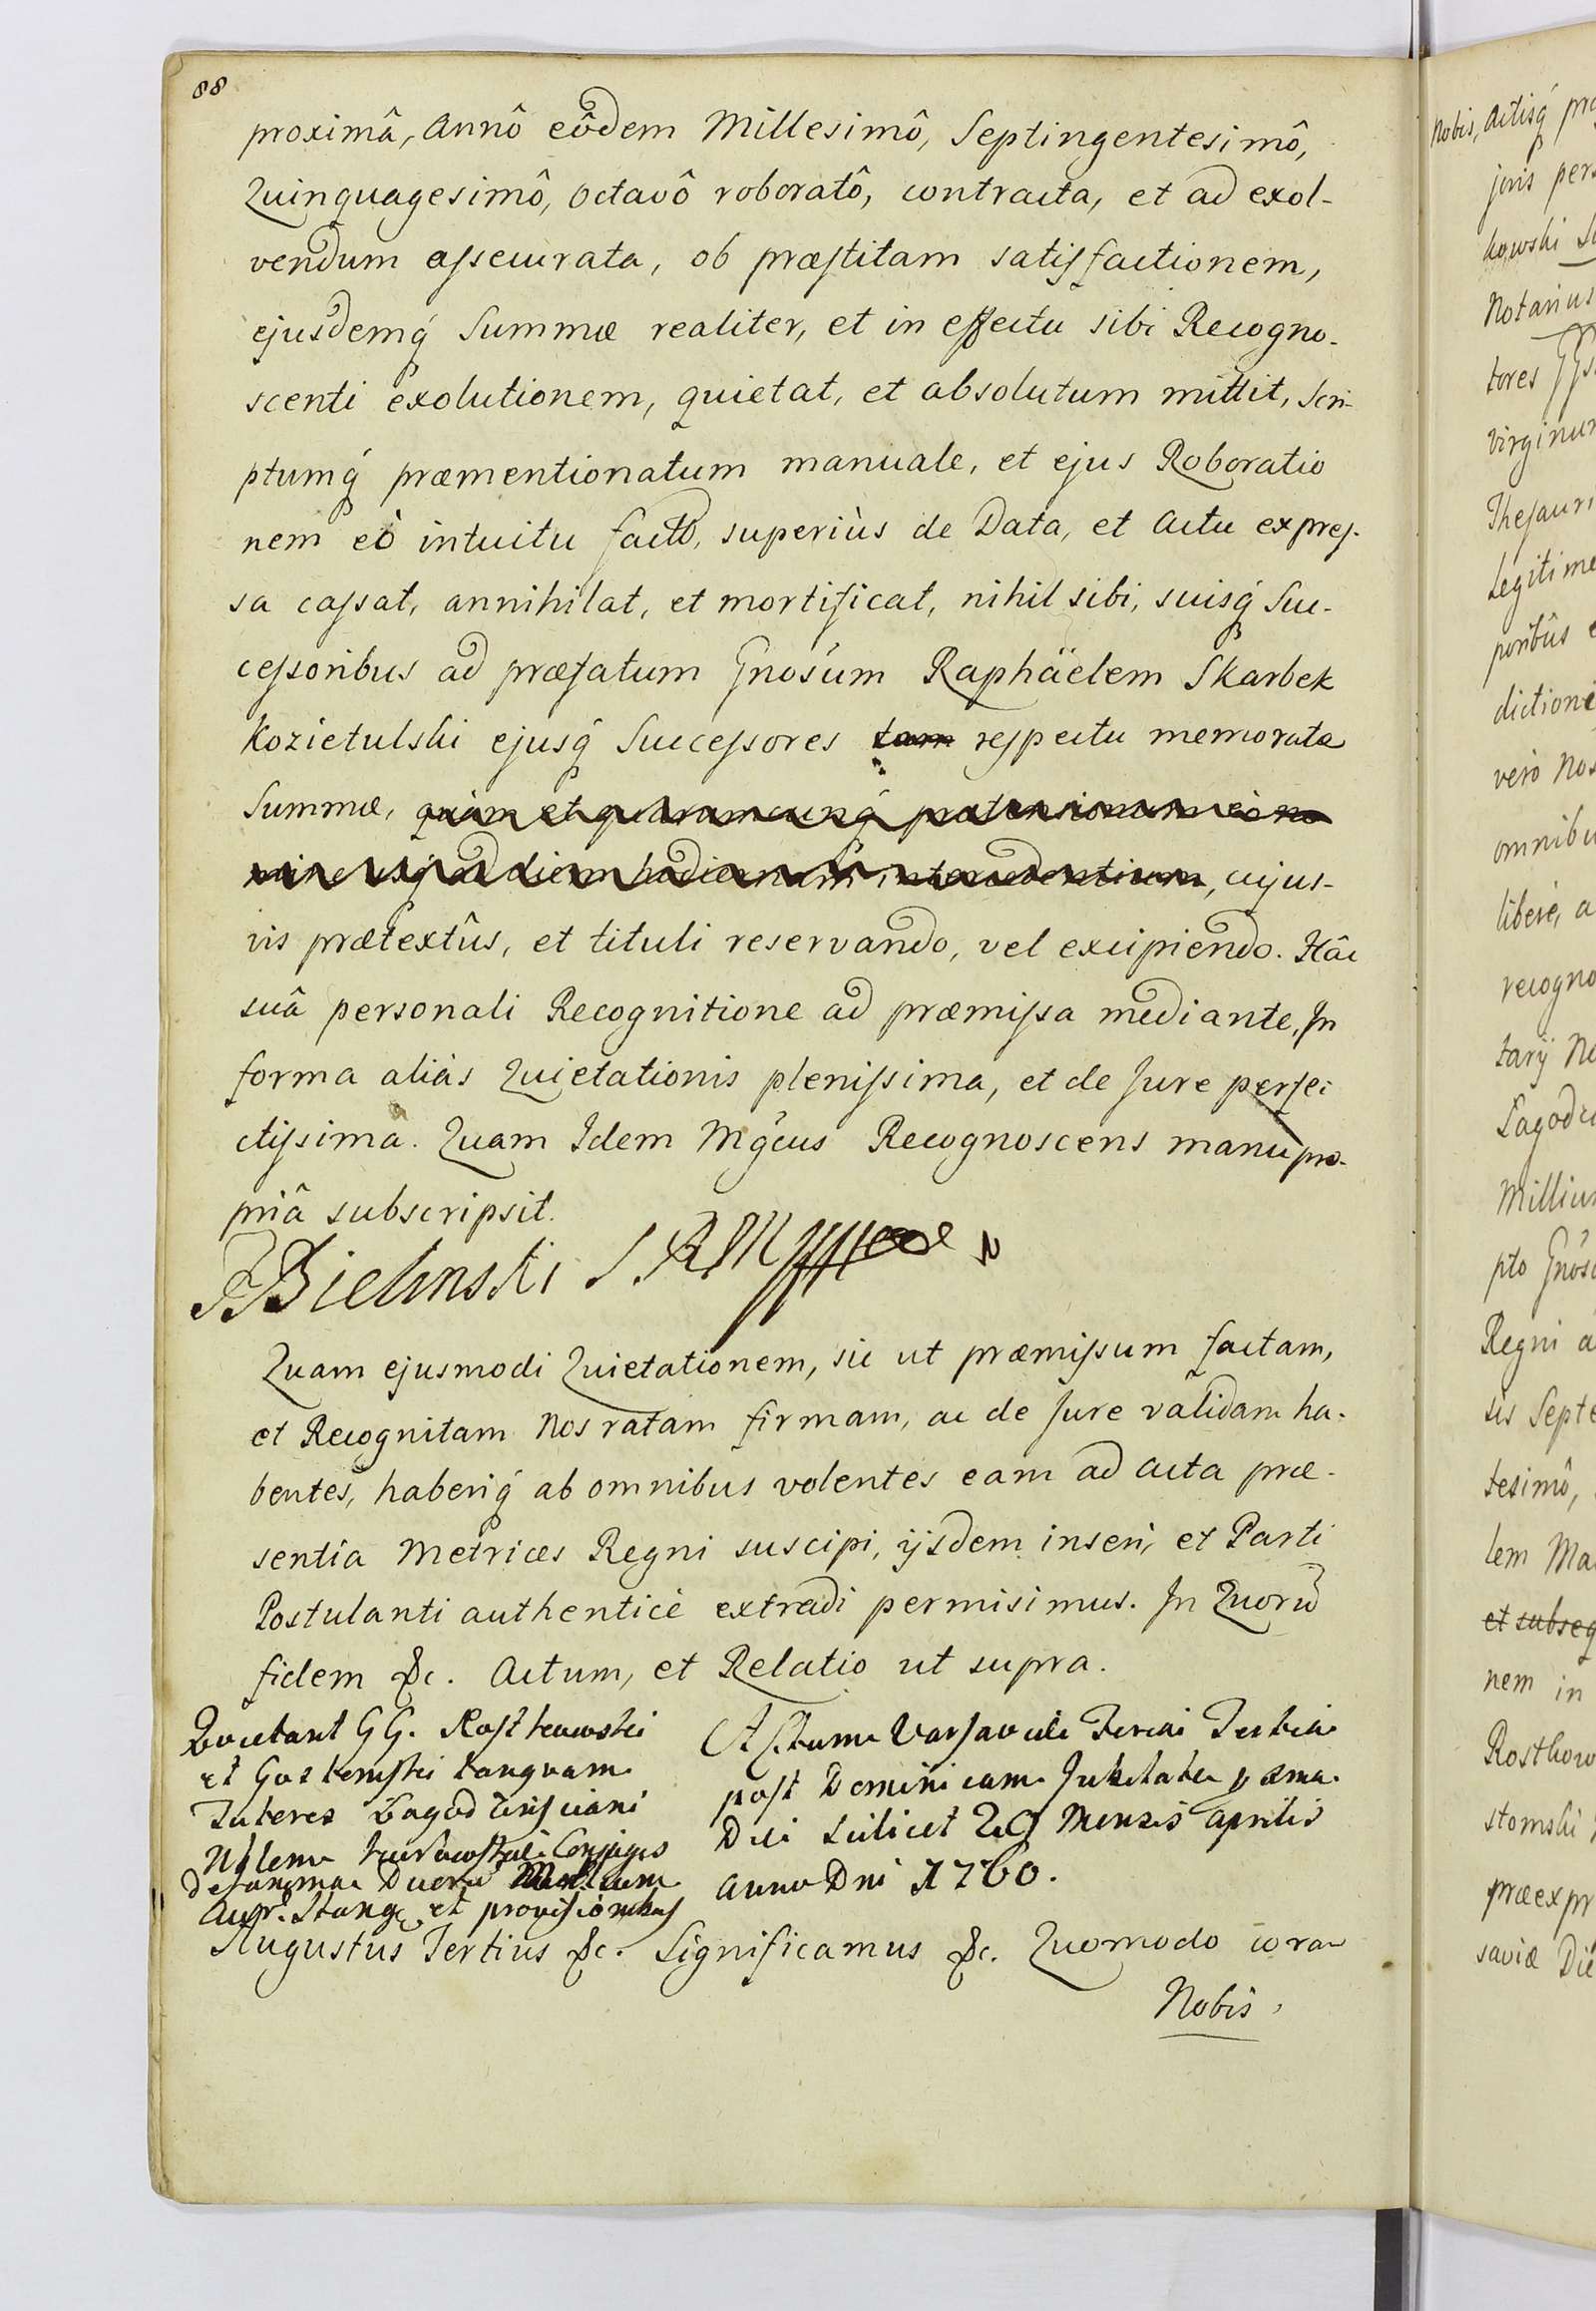 88
proximâ, Annô eôdem Millesimô, Septingentesimô,
Quinquagesimô, Octavô roboratô, contracta, et ad exol-
vendum assecurata, ob præstitam satisfactionem,
ejusdemq́ Summæ realiter, et in effectu sibi Recogno-
scenti exolutionem, quietat, et absolutum mittit, Scri-
ptumq́ præmentionatum manuale, et ejus Roboratio
nem eò intuitu facto, superiùs de Data, et Actu expres-
sa cassat, annihilat, et mortificat, nihil sibi, suisq́ Suc-
cessoribus ad præfatum Gnosum Raphäelem Skarbek
Kozietulski ejusq́ Successores tam respectu memoratæ
Summæ, quàm et quarumcunq́ prætensionum eò no
mine usq́ ad diem hodiernam intercedentium, cujus-
vis prætextûs, et tituli reservando, vel excipiendo. Hâc
suâ personali Recognitione ad præmissa mediante, In
forma aliàs Quietationis plenissima, et de Jure perfe
ctissima. Quam Idem Mgcus Recognoscens manu pro-
priâ subscripsit.
F Bielinski
Quam ejusmodi Quietationem, sic ut præmissum factam,
et Recognitam Nos ratam firmam, ac de Jure validam ha-
bentes, haberiq́ ab omnibus volentes eam ad Acta præ-
sentia Metrices Regni suscipi, ijsdem inseri, et Parti
Postulanti authenticè extradi permisimus. In Quorũ
fidem &c. Actum, et Relatio ut supra.
Quietant GG. Rostkowski
et Gostomski tanquam
Tutores
Conjuges
de Summa Duorũ Millium
Aur. et provisionibus
Actum Varsaviæ Feria Tertia
post Dominicam Jubilate pxma
Die scilicet 29 Mensis Aprilis
Anno Dni 1760.
Augustus Tertius &c. Significamus &c. Quomodo coram
Nobis,
Nobis, Actisq́
juris
kowski
Notarius
tores
Virginum
Thesauri
Legitime
dictioni
vero Nos
omnibu
liberè, a
recogno
Millium
pto Gnoso
Regni a
Septe
tesimô,
lem Ma
et subseq
nem in
Rostkow
stomski
præexpr
saviæ Die